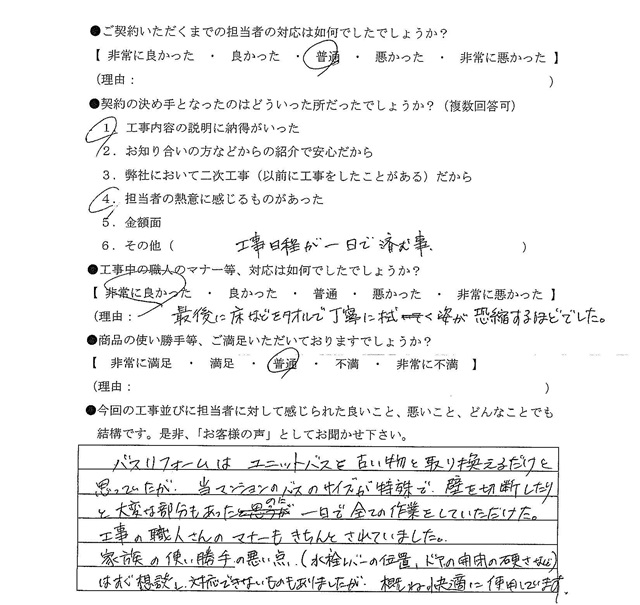 ●ご契約いただくまでの担当者の対応は如何でしたでしょうか？
【 非常に良かった ・ 良かった ・ 普通 ・ 悪かった ・ 非常に悪かった 】
（理由： ）
●契約の決め手となったのはどういった所だったでしょうか？（複数回答可）
1．工事内容の説明に納得がいった
2．お知り合いの方などからの紹介で安心だから
3．弊社において二次工事（以前に工事をしたことがある）だから
4．担当者の熱意に感じるものがあった
5．金額面
6．その他（ 工事日程が一日で済む事、 ）
●工事中の職人のマナー等、対応は如何でしたでしょうか？
【 非常に良かった ・ 良かった ・ 普通 ・ 悪かった ・ 非常に悪かった 】
（理由： 最後に床などをタオルで丁寧に拭く姿が恐縮するほどでした。
●商品の使い勝手等、ご満足いただいておりますでしょうか？
【 非常に満足 ・ 満足 ・ 普通 ・ 不満 ・ 非常に不満 】
（理由： ）
●今回の工事並びに担当者に対して感じられた良いこと、悪いこと、どんなことでも
結構です。是非、「お客様の声」としてお聞かせ下さい。
バスリフォームは ユニットバスを古い物と取り換えるだけと
思っていたが、当マンションのバスのサイズが特殊で、壁を切断したり
と大変な部分もあったのに 一日で全ての作業をしていただけた。
工事の職人さんのマナーもきちんとされていました。
家族の使い勝手の悪い点、（水栓レバーの位置、ドアの開閉の硬さなど）
はすぐ相談し対応できないものもありましたが、概ね快適に使用しています。